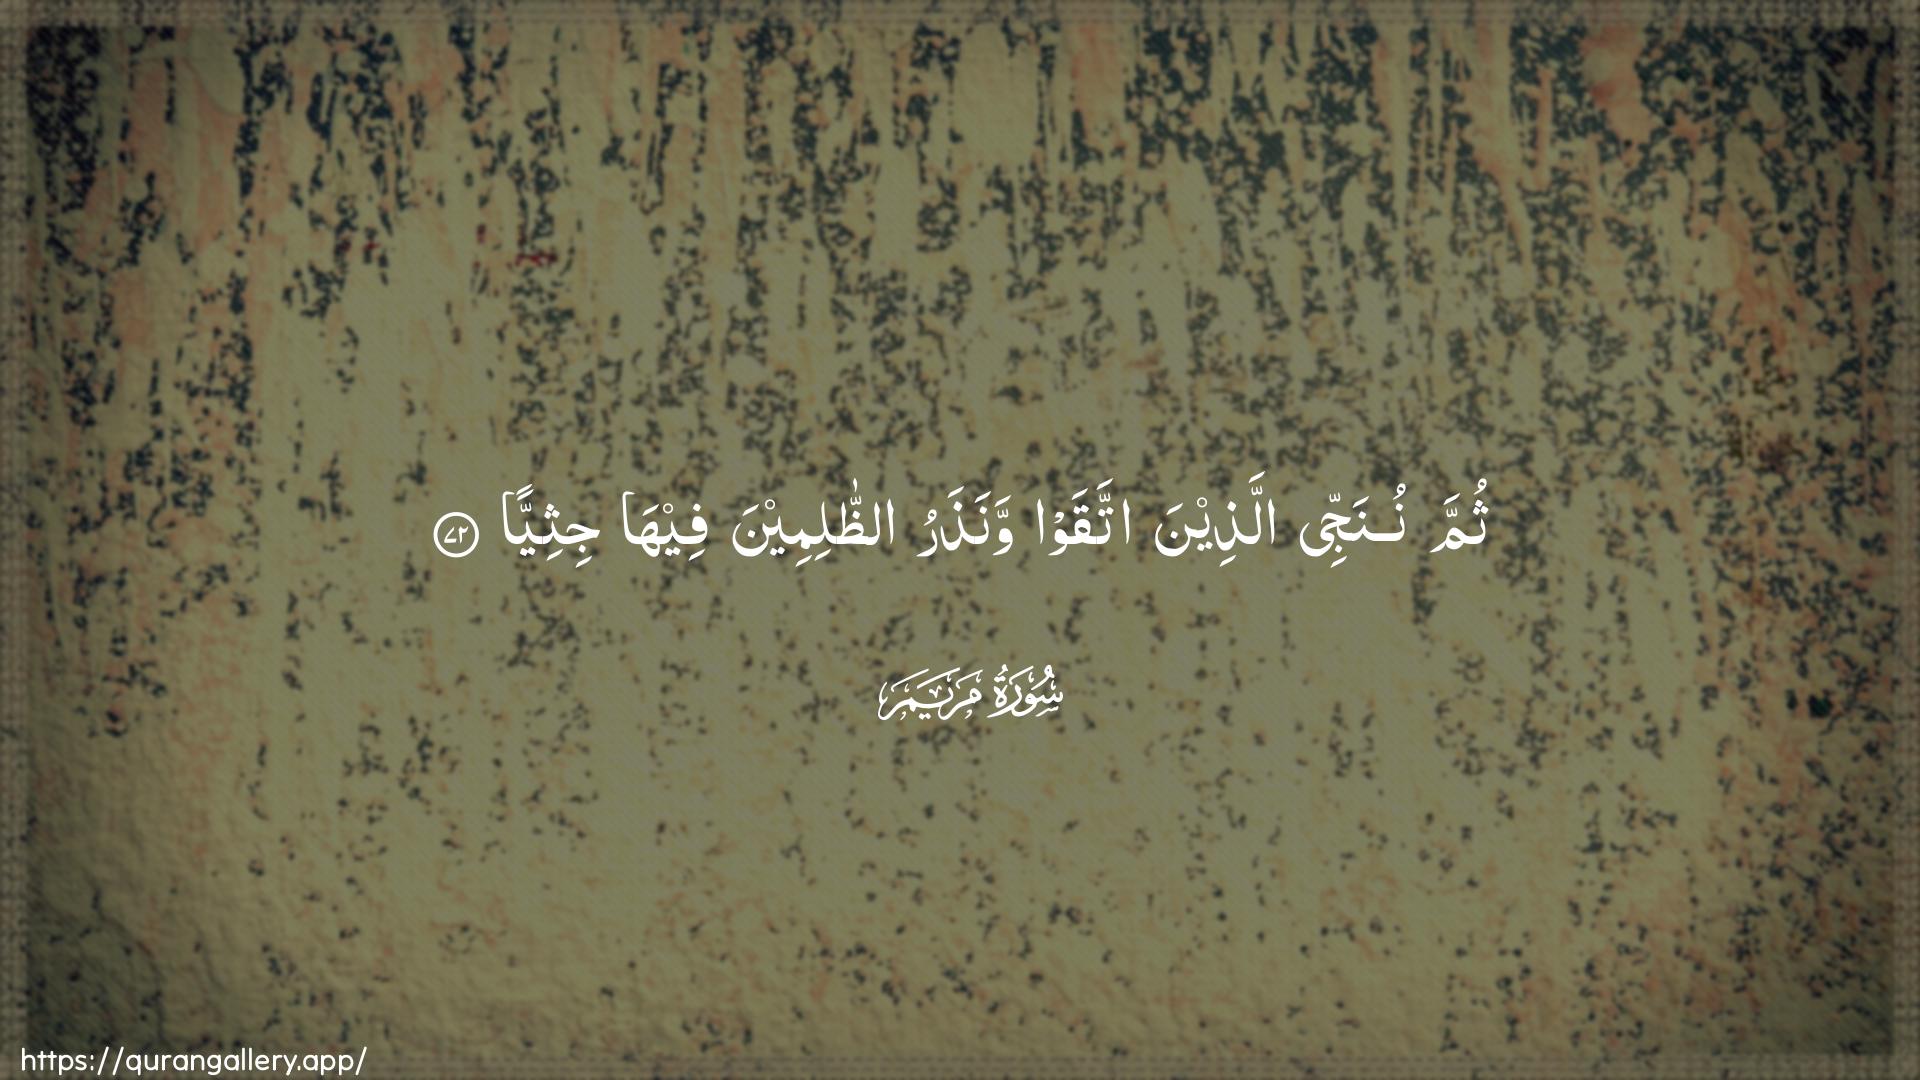 ثُمَّ نُـنَجِّى الَّذِيْنَ اتَّقَوْا وَّنَذَرُ الظّٰلِمِيْنَ فِيْهَا جِثِيًّا ۷۲
سُورَةُ مَرۡيَمَ
https://qurangallery.app/